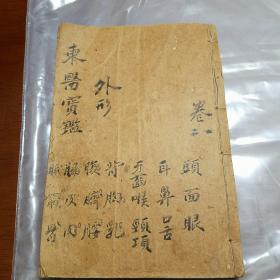 東醫寶鑑
外形
卷一二
頭面眼
耳鼻口舌
牙齒喉頸項
背胸乳
腹臍腰
脇皮肉
脈筋骨